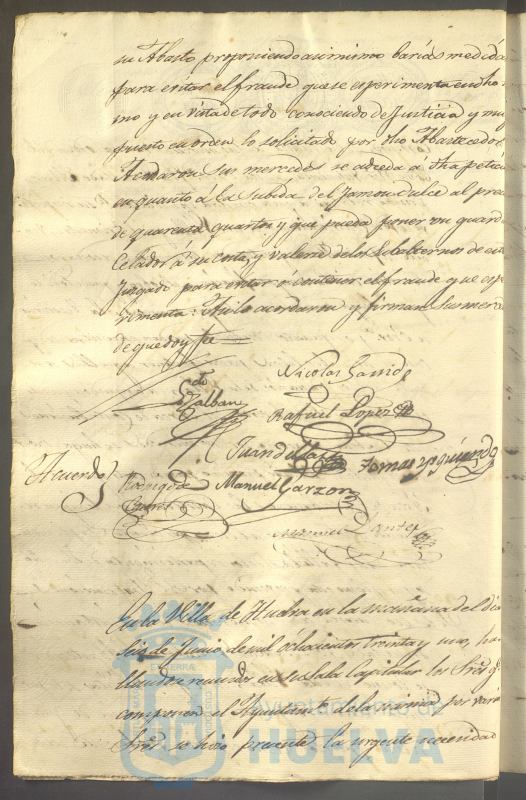 su Abasto proponiendo asimismo barias medidas
para evitar el fraude que se esperimenta en dho
mo y en vista de todo conociendo de Justicia y muy
puesto en orden lo solicitado por dho Abastecedor
Acordaron sus mercedes se acceda á dha peticion
en quanto á la subida del Jamon dulce al precio
de quarenta quartos y que pueda poner un guarda
Celador á su costa, y valerse de los de este
Juzgado para evitar ó contener el fraude que espe
rimenta: Asi lo acordaron y firman sus merce
de que doy fee
Nicolas Garrido
Galban
Rafael Lopez
Juan Tomas Ysquierdo
Acuerdo
Rodrigo de Manuel Garzon
Manuel
En la Villa de Huelva en la mañana del dia
seis de Junio de mil ochocientos treinta y uno, ha
llandose reunidos en su Sala Capitular los Sres q
componen el Ayuntamto de la misma por varios
Sres se hizo presente la urgente necesidad
Ayuntamiento de
HUELVA